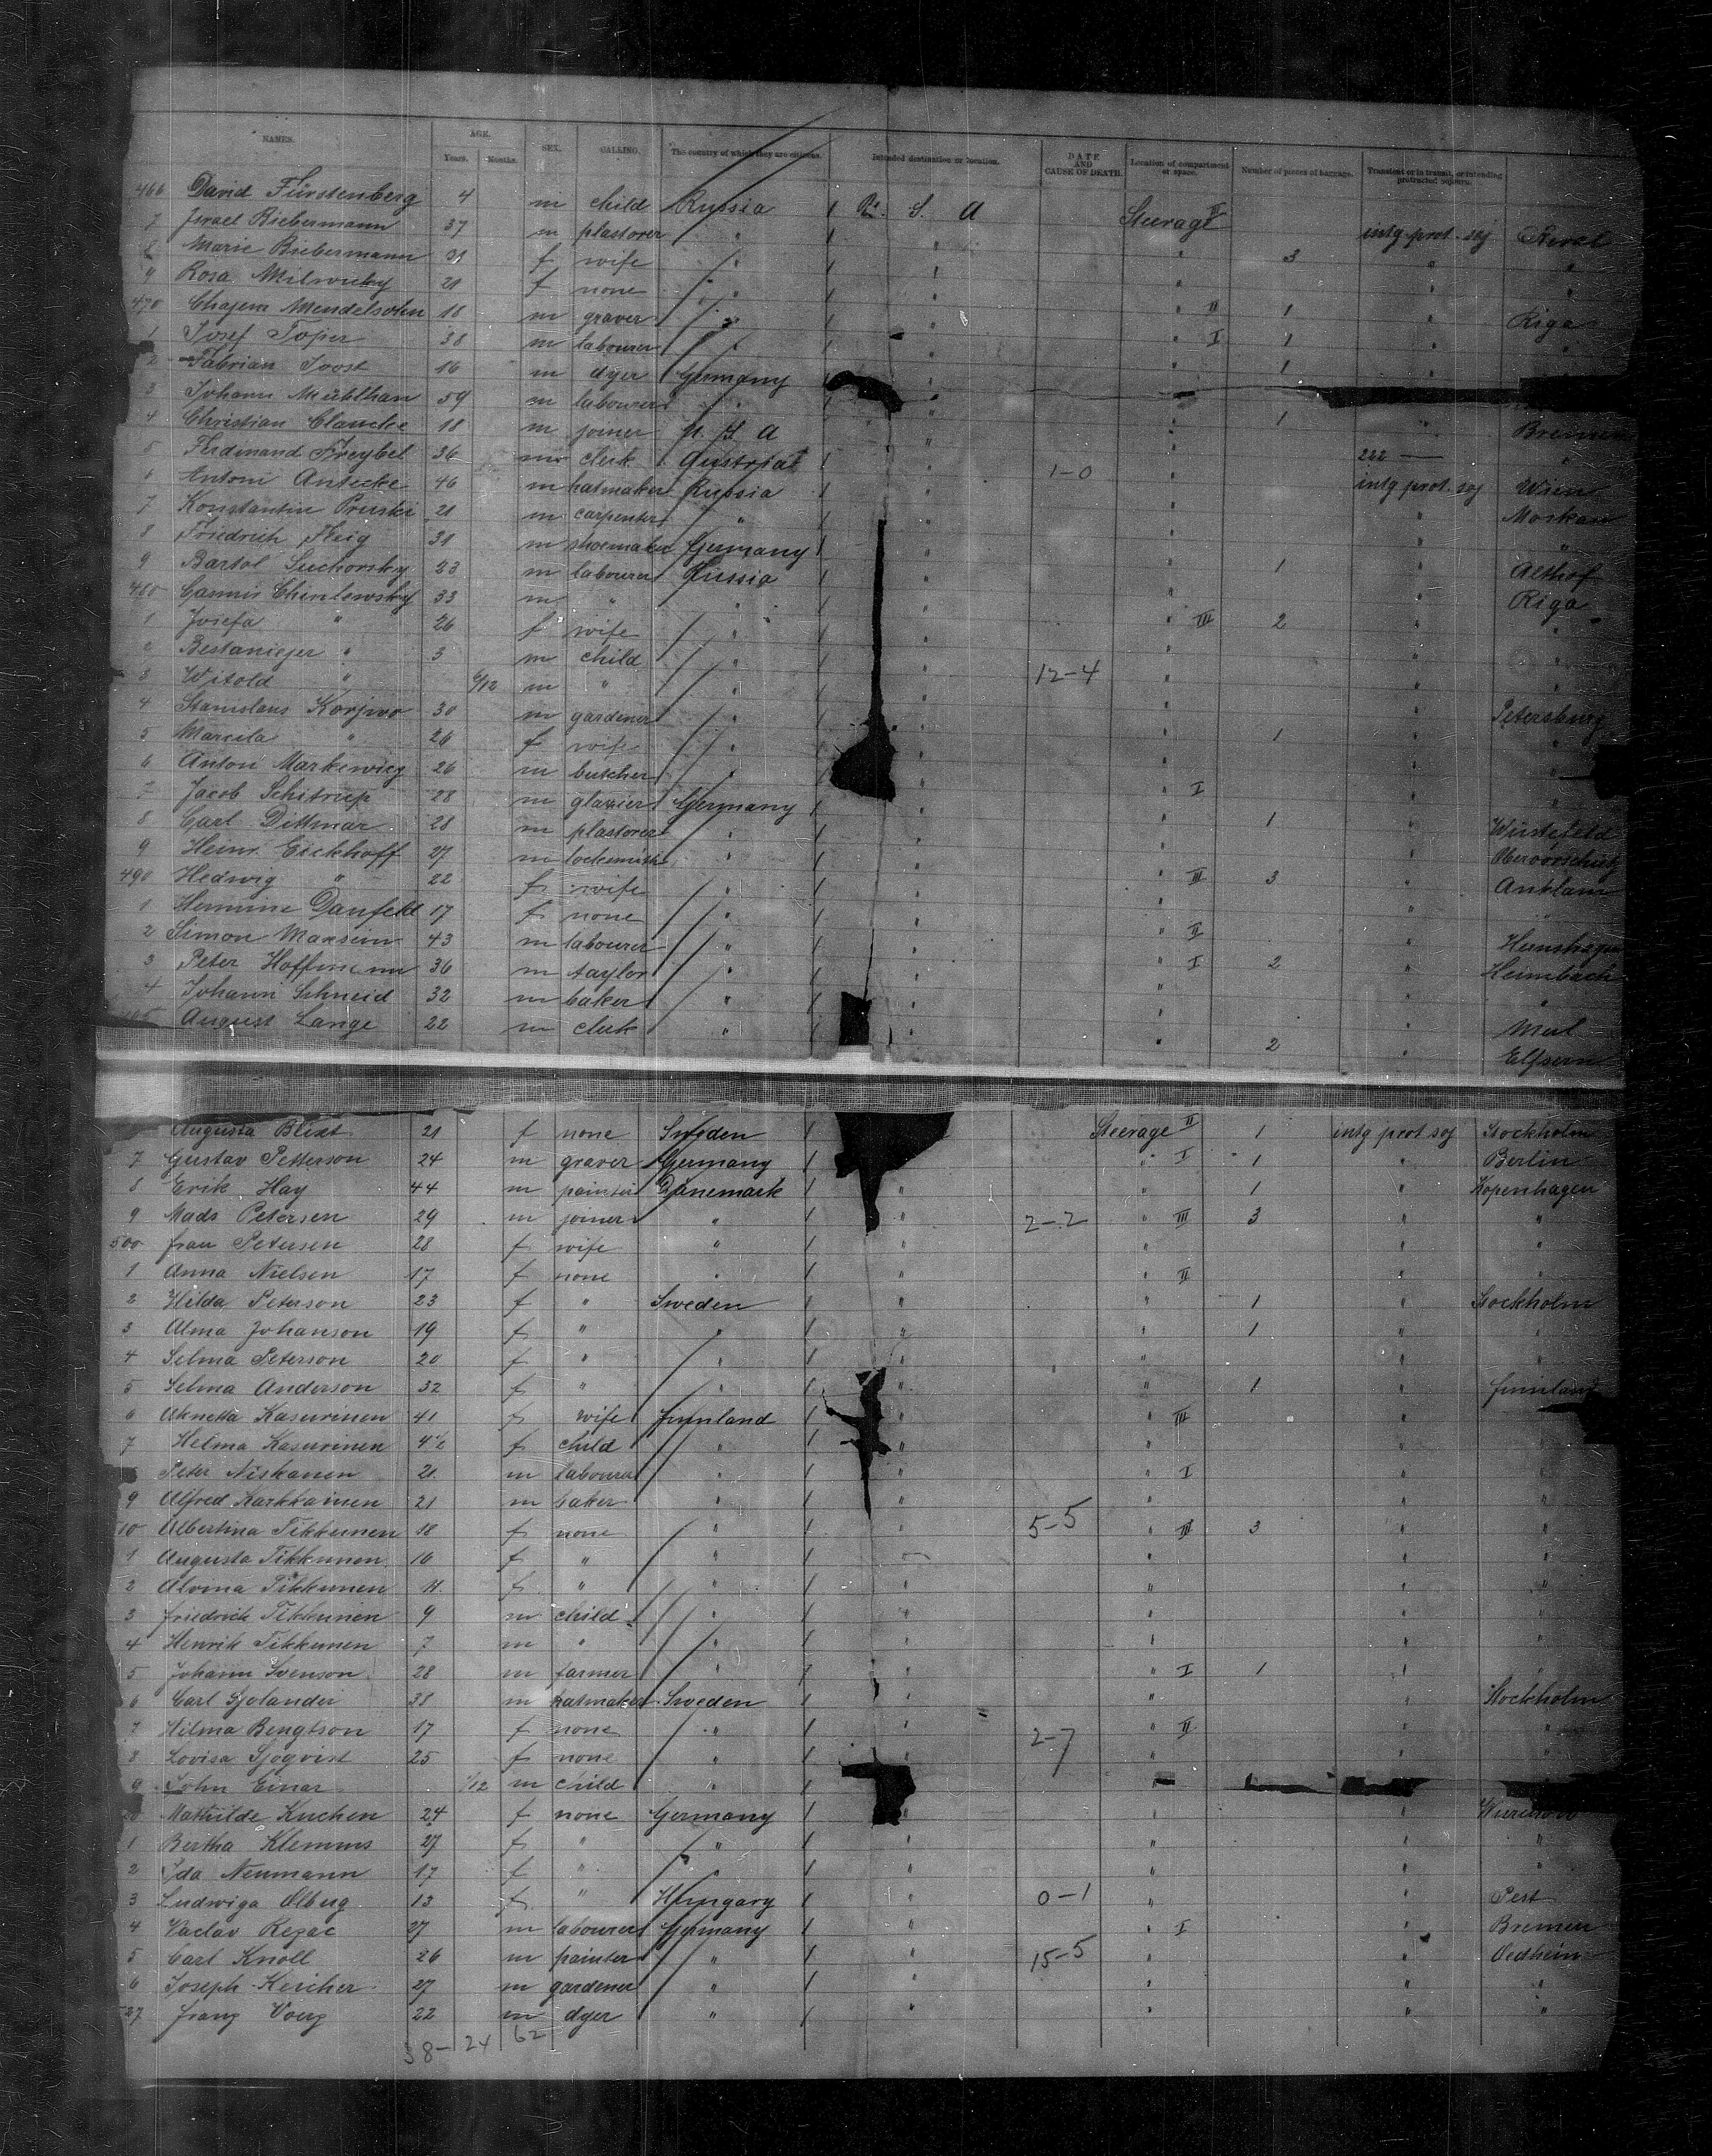 NAMES. AGE. Years. Months. SEX. CALLING. The country of which they are citizens. Intended destination or location. DATE AND CAUSE OF DEATH. Location of compartment or space. Number of pieces of baggage. Transient or in transit, or intending protracted sojourn.
466 David Fürstenberg 4 m child Russia 1 S. A Steerage II
7 Israel Biebermann 37 m plastorer " 1 " intg prot. soj Reval
8 Marie Biebermann 31 f wife " 1 " " 3 " "
9 Rosa 21 f none " 1 " " " "
470 Chajem Mendelsohn 18 m graver " 1 " " II 1 " Riga
1 Josef Toper 38 m labourer " 1 " " I 1 " "
2 Fabrian Joost 16 m dyer Germany 1 " " 1 "
3 Johann Mühlhan 59 m labourer " 1 "
4 Christian Claucke 18 m joiner U. S. A " " 1 " Bremen
5 Ferdinand Freybel 36 m clerk Austria 1 1-0 " 222 — "
6 Antoni Antecke 46 m hatmaker Russia 1 " intg prot. soj Wien
7 Konstantin Pruski 21 m carpenter " 1 " " Moskau
8 Friedrich Fleig 31 m shoemaker Germany 1 " " " "
9 Bartol Suchorsky 23 m labourer Russia 1 " 1 " Althof
480 Chinlewsky 33 m " " 1 " " " Riga
1 Josefa " 26 f wife " 1 " " III 2 " "
2 " 3 m child " 1 " " " "
3 Witold " 6/12 m " " 1 " 12-4 " " "
4 Stanislaus Korjwo 30 m gardener " 1 " Petersburg
5 Marcela " 26 f wife " 1 " " 1 " "
6 Anton Markewicz 26 m butcher " 1 " " " "
7 Jacob Schitrup 28 m glazier Germany 1 " " I " "
8 Carl Dittmar 28 m plastorer " 1 " " 1 " Wüstefeld
9 Heinr. Eickhoff 27 m locksmith " 1 " "
490 Hedwig " 22 f wife " 1 " " III 3 " Anklam
1 Hermine Danfeld 17 f none " 1 " " " "
2 Simon 43 m labourer " 1 " " II "
3 Peter Hoffmann 36 m taylor " 1 " " I 2 " Heimbach
4 Johann Schneid 32 m baker " 1 " " " "
495 August Lange 22 m clerk " 1 " " "
" 2 "
Augusta Blixt 21 f none Sweden 1 Steerage II 1 intg prot soj Stockholm
7 Gustav Petterson 24 m graver Germany 1 " I 1 " Berlin
8 Erik Hay 44 m painter Dänemark 1 " " 1 " Kopenhagen
9 Mads Petersen 29 m joiner " 1 " 2-2 " III 3 " "
500 frau Petersen 28 f wife " 1 " " " "
1 Anna Nielsen 17 f none " 1 " " II " "
2 Hilda Peterson 23 f " Sweden 1 " " 1 " Stockholm
3 Alma Johanson 19 f " " 1 " " 1 " "
4 Selma Peterson 20 f " " 1 " " " "
5 Selma Anderson 32 f " " 1 " " 1 " finnland
6 Ahnetta Kasurinen 41 f wife finnland 1 " " III " "
7 Helma Kasurinen 4 1/2 f child " 1 " " " "
Peter Niskanen 21 m labourer " 1 " " I " "
9 Alfred Karkkainen 21 m baker " 1 " " " "
10 Albertina Tikkunen 18 f none " 1 " 5-5 " III 3 " "
1 Augusta Tikkunen 16 f " " 1 " " " "
2 Alvina Tikkunen 11 f " " 1 " " " "
3 friedrich Tikkunen 9 m child " 1 " " " "
4 Henrik Tikkunen 7 m " " 1 " " " "
5 Johann Svenson 28 m farmer " 1 " " I 1 " "
6 Carl Sjolander 38 m hatmaker Sweden 1 " " " Stockholm
7 Hilma Bengtson 17 f none " 1 " 2-7 " II " "
8 Lovisa Sjoqvist 25 f none " 1 " " " "
9 John Einar 1/12 m child " 1
20 Mathilde Kuchen 24 f none Germany 1 " " "
1 Bertha Klemms 27 f " " 1 " " " "
2 Ida Neumann 17 f " " 1 " " " "
3 Ludwiga Olberg 13 f " Hungary 1 " 0-1 " " Pest
4 Vaclav Rezac 27 m labourer Germany 1 " " I " Bremen
5 Carl Knoll 26 m painter " 1 " 15-5 " " Oedheim
6 Joseph Keicher 27 m gardener " 1 " " " "
527 franz Voerg 22 m dyer " 1 " " " "
38-24 62